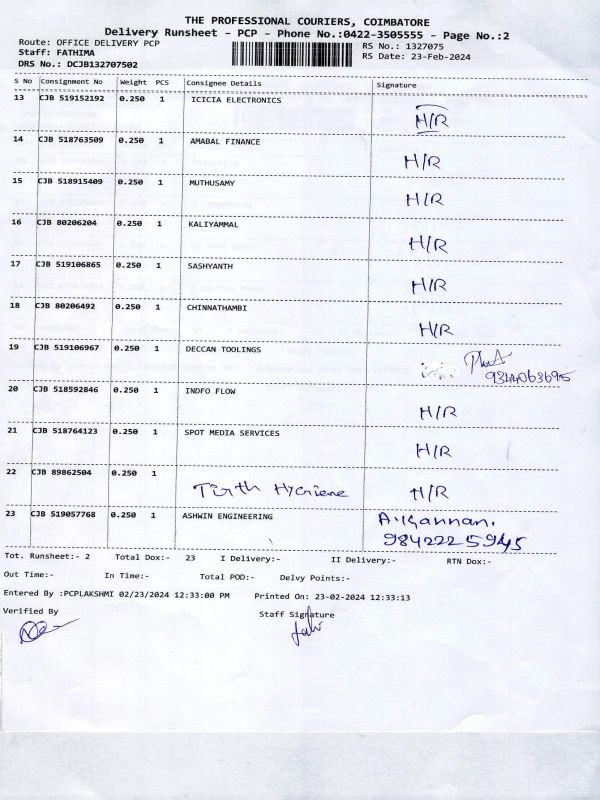 THE PROFESSIONAL COURIERS, COIMBATORE
Delivery Runsheet - PCP - Phone No.:0422-3505555 - Page No.:2
Route: OFFICE DELIVERY PCP RS No.: 1327075
Staff: FATHIMA RS Date: 23-Feb-2024
DRS No.: DCJB132707502
S No Consignment No Weight PCS Consignee Details Signature
13 CJB 519152192 0.250 1 ICICIA ELECTRONICS H/R
14 CJB 518763509 0.250 1 AMABAL FINANCE H/R
15 CJB 518915409 0.250 1 MUTHUSAMY H/R
16 CJB 80206204 0.250 1 KALIYAMMAL H/R
17 CJB 519106865 0.250 1 SASHYANTH H/R
18 CJB 80206492 0.250 1 CHINNATHAMBI H/R
19 CJB 519106967 0.250 1 DECCAN TOOLINGS
9344063695
20 CJB 518592846 0.250 1 INDFO FLOW H/R
21 CJB 518764123 0.250 1 SPOT MEDIA SERVICES H/R
22 CJB 89862504 0.250 1 Tirth Hygiene H/R
23 CJB 519057768 0.250 1 ASHWIN ENGINEERING A.Kannan.
9842225945
Tot. Runsheet:- 2 Total Dox:- 23 I Delivery:- II Delivery:- RTN Dox:-
Out Time:- In Time:- Total POD:- Delvy Points:-
Entered By :PCPLAKSHMI 02/23/2024 12:33:00 PM Printed On: 23-02-2024 12:33:13
Verified By Staff Signature